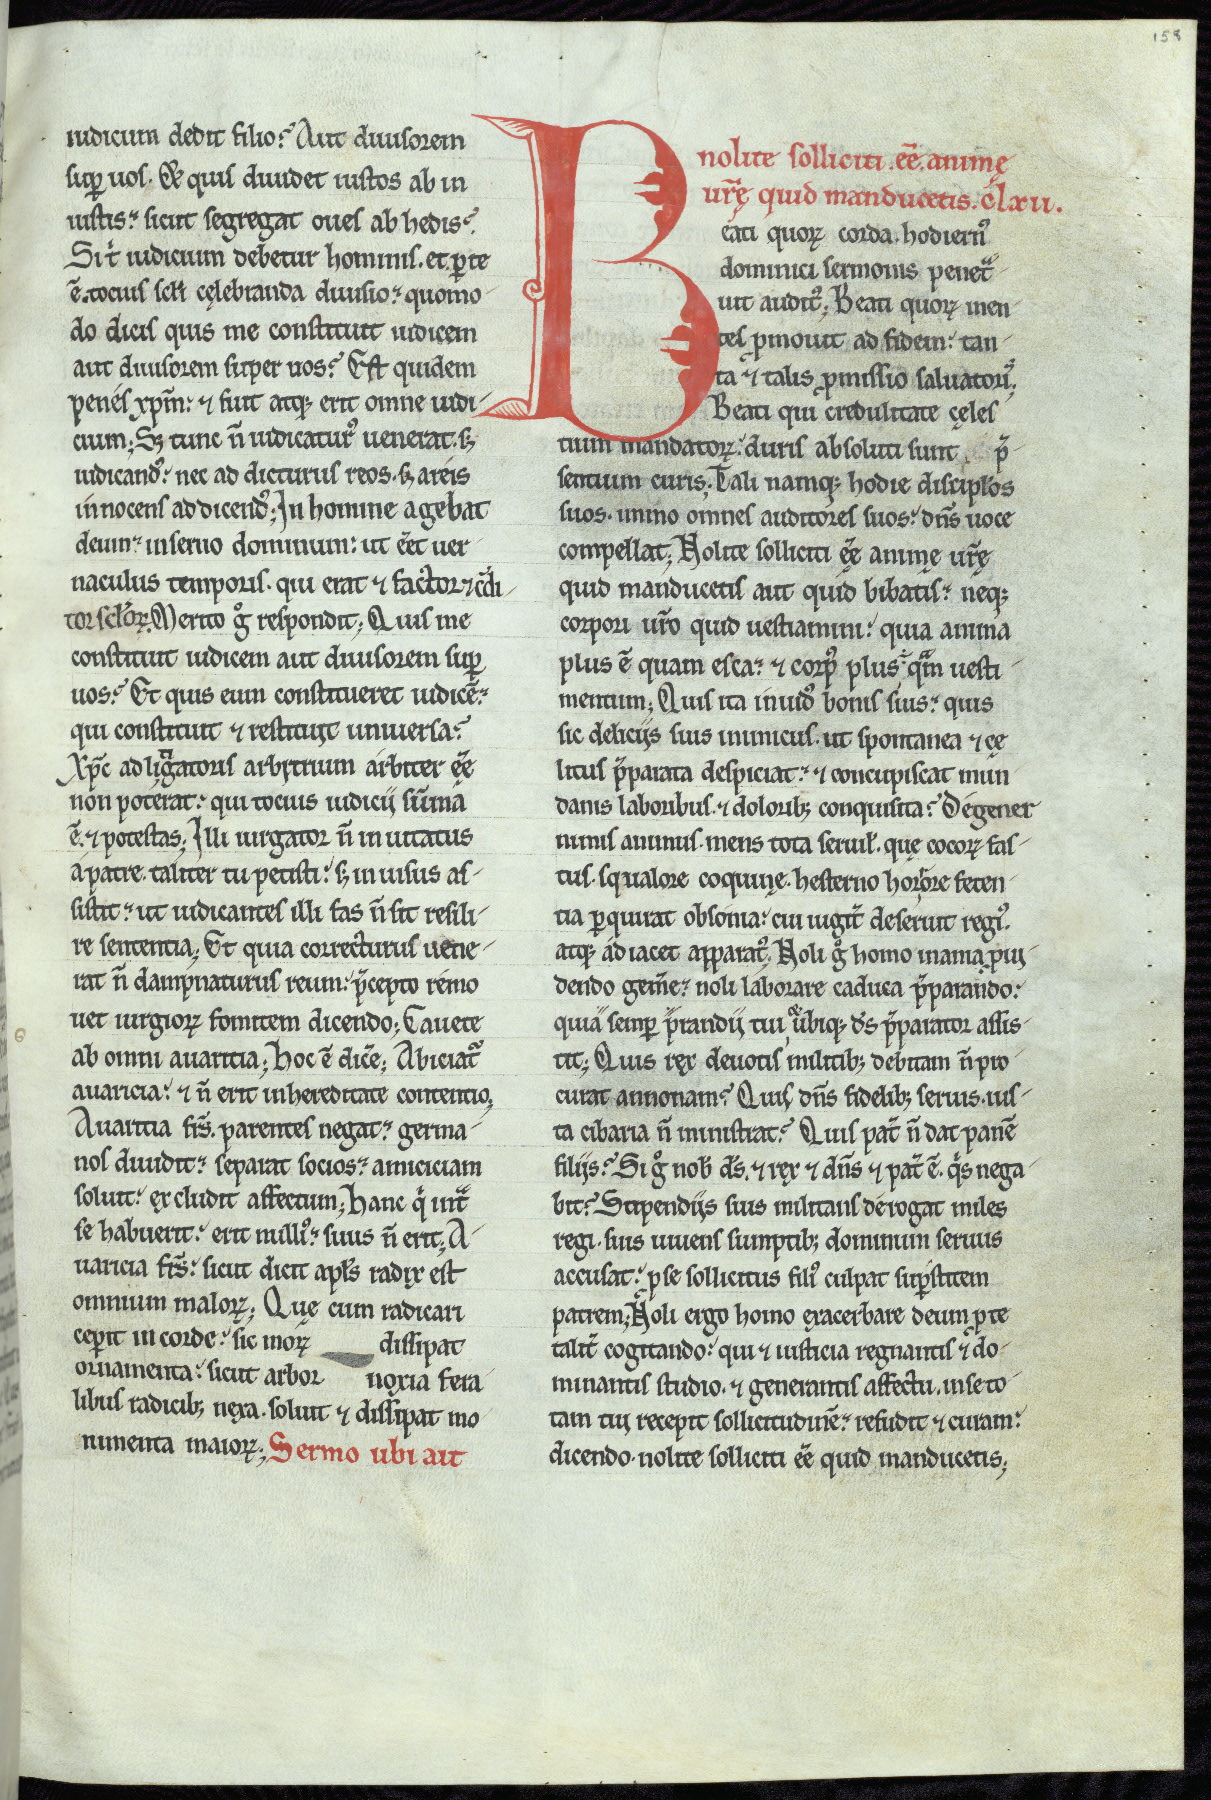 158
iudicium dedit filio? Aut diuisorem
sup̄ uos. & quis diuidet iustos ab in
iustis? sicut segregat oues ab hedis?
Sir̄ iudicium debetur hominis. et ꝑ te
ē. tocius sc̄li cęlebranda diuisio? quomo
do dicis quis me constituit iudicem
aut diuisorem super uos? Est quidem
penés xp̄m: ⁊ fuit atq; erit omne iudi
cium; Sꝫ tunc n̄ iudicatur᷒ uenerat. sꝫ
iudicand᷒: nec ad dicturus reos. sꝫ a reis
innocens addicend᷒; In homine agebat
deum: in seruo dominum: ut eēt uer
naculus temporis. qui erat ⁊ factor ⁊ c̄di
tor sc̄loꝝ. Merito ḡ respondit; Quis me
constituit iudicem aut diuisorem sup̄
uos? Et quis eum constitueret iudicē?
qui constituit ⁊ restituit uniuersa?
Xp̄c ad ligatoris arbitrium árbiter eē
non poterat: qui tocius iudicij sūma
ē. ⁊ potestas; Illi iurgator n̄ in uitatus
á patre. taliter tu petisti: sꝫ inuisus as
sistit: ut iudicantes illi fas n̄ sit resili
re sententia; Et quia correcturus uene
rat n̄ dampnaturus reum: p̄cepto remo
uet iurgioꝝ fomitem dicendo; Cauete
ab omni auaritia; hoc ē dicē; Abiciat᷒
auaricia: ⁊ n̄ erit in hereditate contentio;
Auaritia frs̄. parentes negat: germa
nos diuidit: separat socios: amiciciam
soluit: excludit affectum; Hanc q̄ int̄
se habuerit: erit nulli᷒: suus n̄ erit; A
uaricia frs̄: sicut dicit apl̄s radix est
omnium maloꝝ; Quę cum radicari
ceperit in corde: sic moꝝ dissipat
ornamenta: sicut arbor noxia fera
libus radicib; nexa. soluit ⁊ dissipat mo
numenta maioꝝ; Sermo ubi ait
nolite solliciti. eē. animę
ur̄ę quid manducetis. c̄lxii.
Beati quoꝝ corda. hodierni᷒
dominici sermonis penet̄
uit audit᷒; Beati quoꝝ men
tes ꝑmouit ad fidem: tan
ta ⁊ talis ꝓmissio saluatori᷒;
Beati qui credulitate cęles
tium mandatoꝝ: duris absoluti sunt p̄
sentium curis; Tali namq; hodie discipl̄os
suos. immo omnes auditores suos: dn̄s uoce
compellat; Nolite solliciti eē animę ur̄ę
quid manducetis aut quid bibatis: neq;
corpori ur̄o quid uestiamini: quia anima
plus ē quam esca: ⁊ corp᷒ plus: qm̄ uesti
mentum; Quis ita inuid᷒ bonis suis: quis
sic delicijs suis inimicus. ut spontanea ⁊ cę
litus p̄parata despiciat: ⁊ concupiscat mun
danis laboribus. ⁊ dolorib; conquisita? Dégener
nimis animus. mens tota seruil̄. quę cocoꝝ fas
tus. squalore coquinę. hesterno horrore feten
tia ꝑquirat obsónia: cui iugit̄ deseruit regi᷒.
atq; ádiacet apparat᷒; Noli ḡ homo inania ꝓui
dendo gemē̄: noli laborare caduca p̄parando:
quia semp̄ p̄randij tui ubiq; ds̄ p̄parator assis
tit; Quis rex deuotis militib; debitam n̄ pro
curat annonam? Quis dn̄s fidelib; seruis. ius
ta cibaria n̄ ministrat? Quis pat̄ n̄ dat panē
filijs? Si ḡ nob̄ ds̄. ⁊ rex ⁊ dn̄s ⁊ pat̄ ē. q̄s nega
bit? Stipendijs suis militans dérogat miles
regi. suis uiuens sumptib; dominum seruus
accusat: ꝑ se sollicitus fili᷒ culpat sup̄stitem
patrem; Noli ergo homo exacerbare deum ꝑ te
talit̄ cogitando: qui ⁊ iusticia regnantis ⁊ do
minantis studio. ⁊ generantis affectu. in se to
tam tui recepit sollicitudinē: refudit ⁊ curam:
dicendo. nolite solliciti eē quid manducetis;